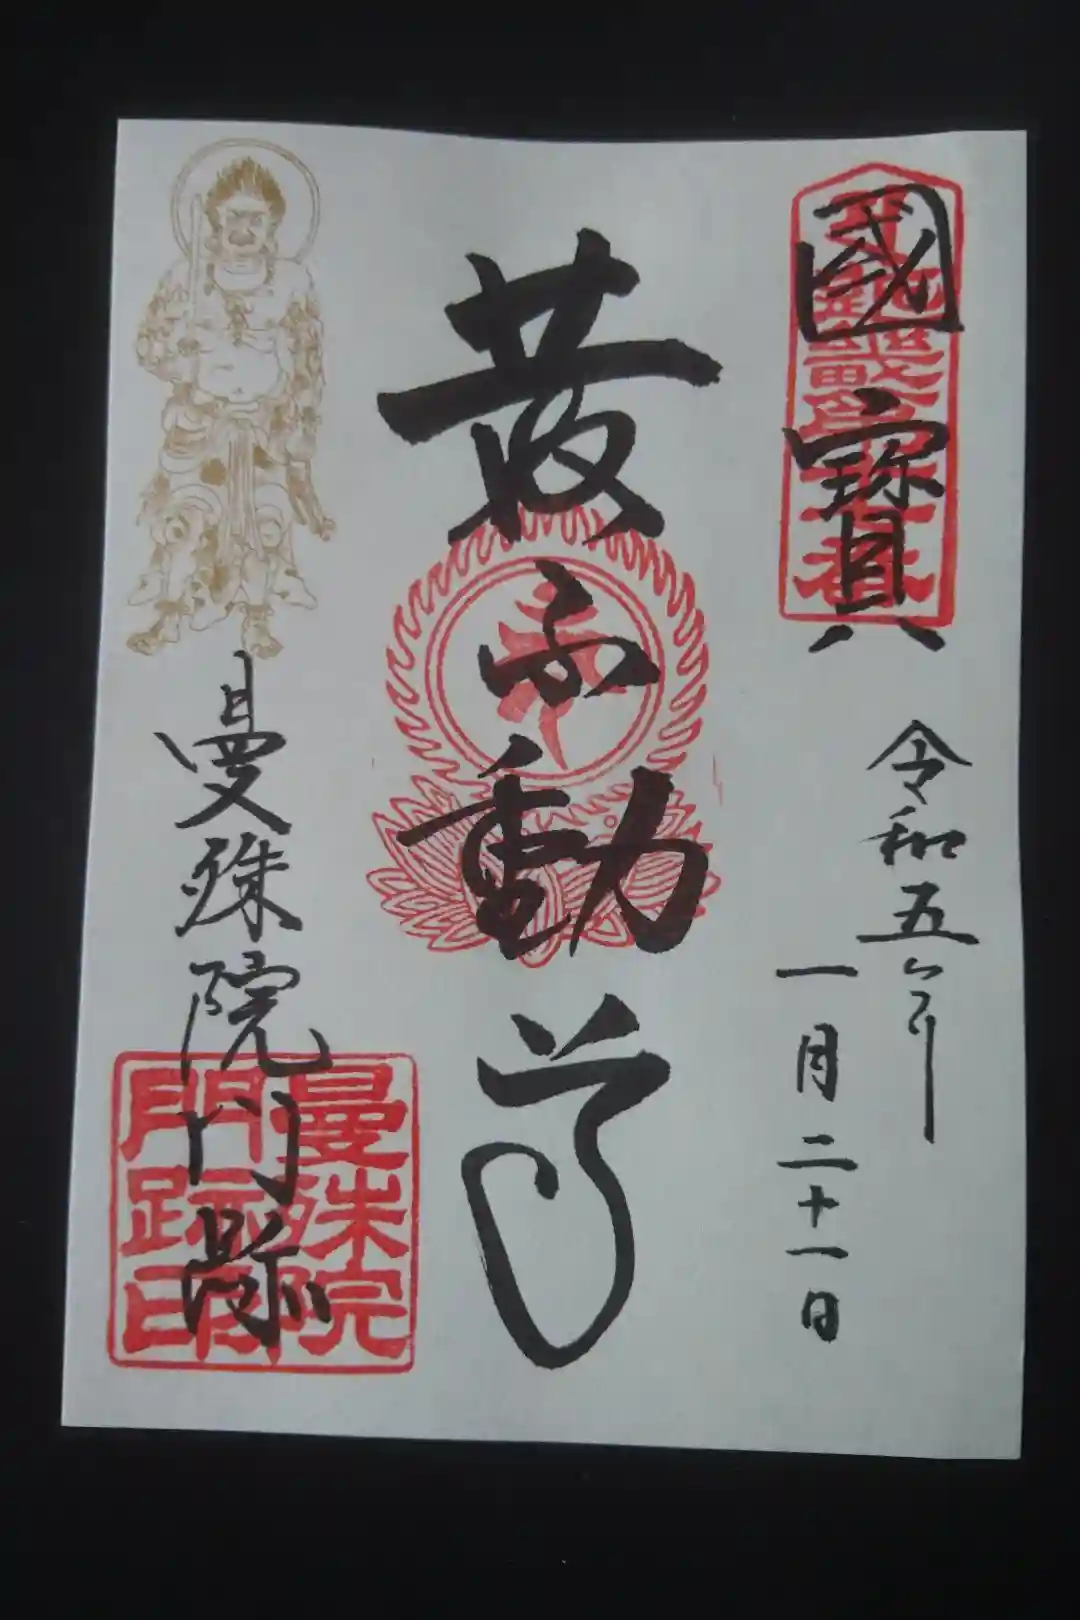 國寶
令和五年
一月二十一日
黄不動尊
曼殊院門跡
曼殊院門跡印